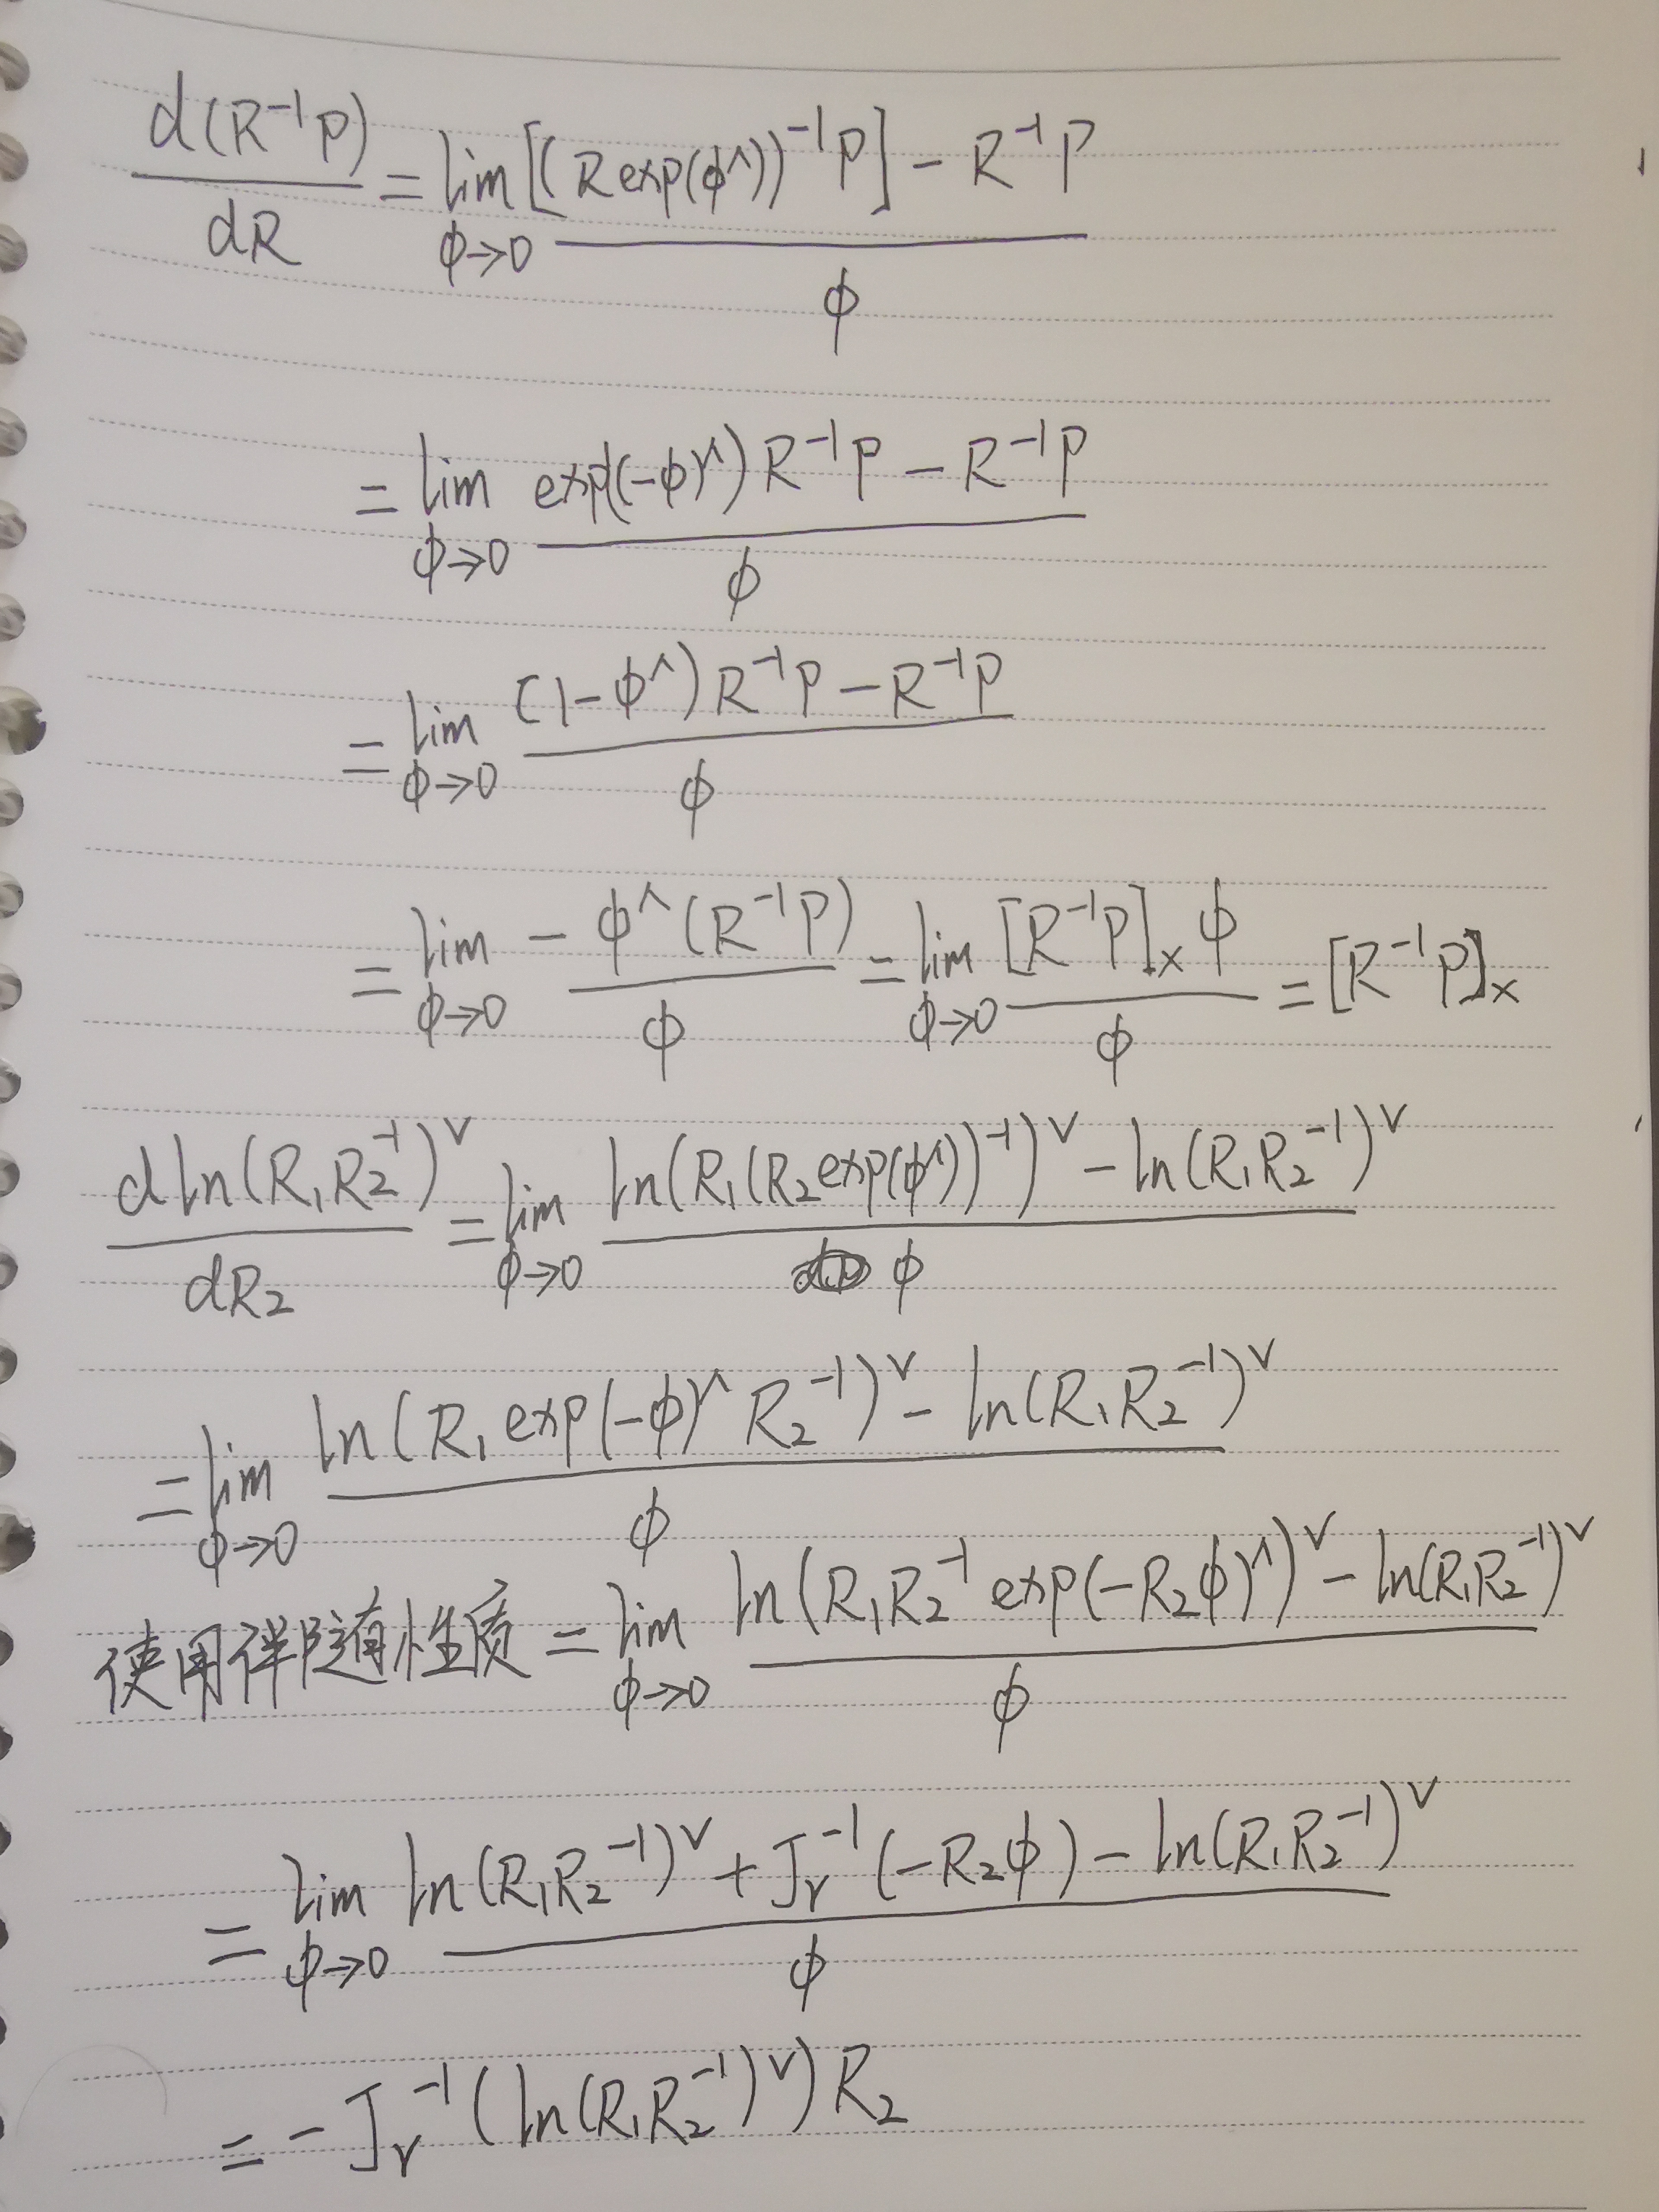 d(R⁻¹P)/dR = lim_{ϕ→0} [(R exp(ϕ^))⁻¹P] − R⁻¹P / ϕ
= lim_{ϕ→0} exp(−ϕ)^)R⁻¹P − R⁻¹P / ϕ
= lim_{ϕ→0} (1−ϕ^)R⁻¹P − R⁻¹P / ϕ
= lim_{ϕ→0} − ϕ^(R⁻¹P) / ϕ = lim_{ϕ→0} [R⁻¹P]ₓ ϕ / ϕ = [R⁻¹P]ₓ
d ln(R₁R₂⁻¹)^∨ / dR₂ = lim_{ϕ→0} ln(R₁(R₂exp(ϕ^))⁻¹)^∨ − ln(R₁R₂⁻¹)^∨ / ϕ
= lim_{ϕ→0} ln(R₁ exp(−ϕ)^ R₂⁻¹)^∨ − ln(R₁R₂⁻¹)^∨ / ϕ
使用伴随性质 = lim_{ϕ→0} ln(R₁R₂⁻¹ exp(−R₂ϕ)^)^∨ − ln(R₁R₂⁻¹)^∨ / ϕ
= lim_{ϕ→0} ln(R₁R₂⁻¹)^∨ + Jᵣ⁻¹(−R₂ϕ) − ln(R₁R₂⁻¹)^∨ / ϕ
= −Jᵣ⁻¹(ln(R₁R₂⁻¹)^∨)R₂